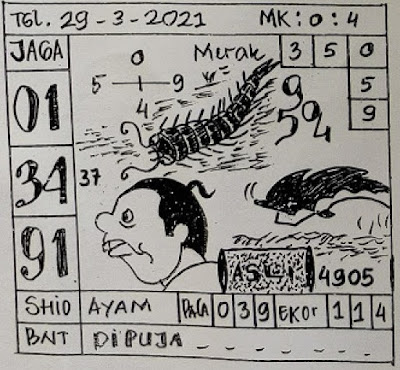 TGL. 29-3-2021 MK: 0:4
JAGA
01
34
91
0
5 9
4
Merak
3 5 0
5
9
9
5 4
37
ASLI 4905
SHIO AYAM PAGA 0 3 9 EKOR 1 1 4
BNT DIPUJA - - - - - -